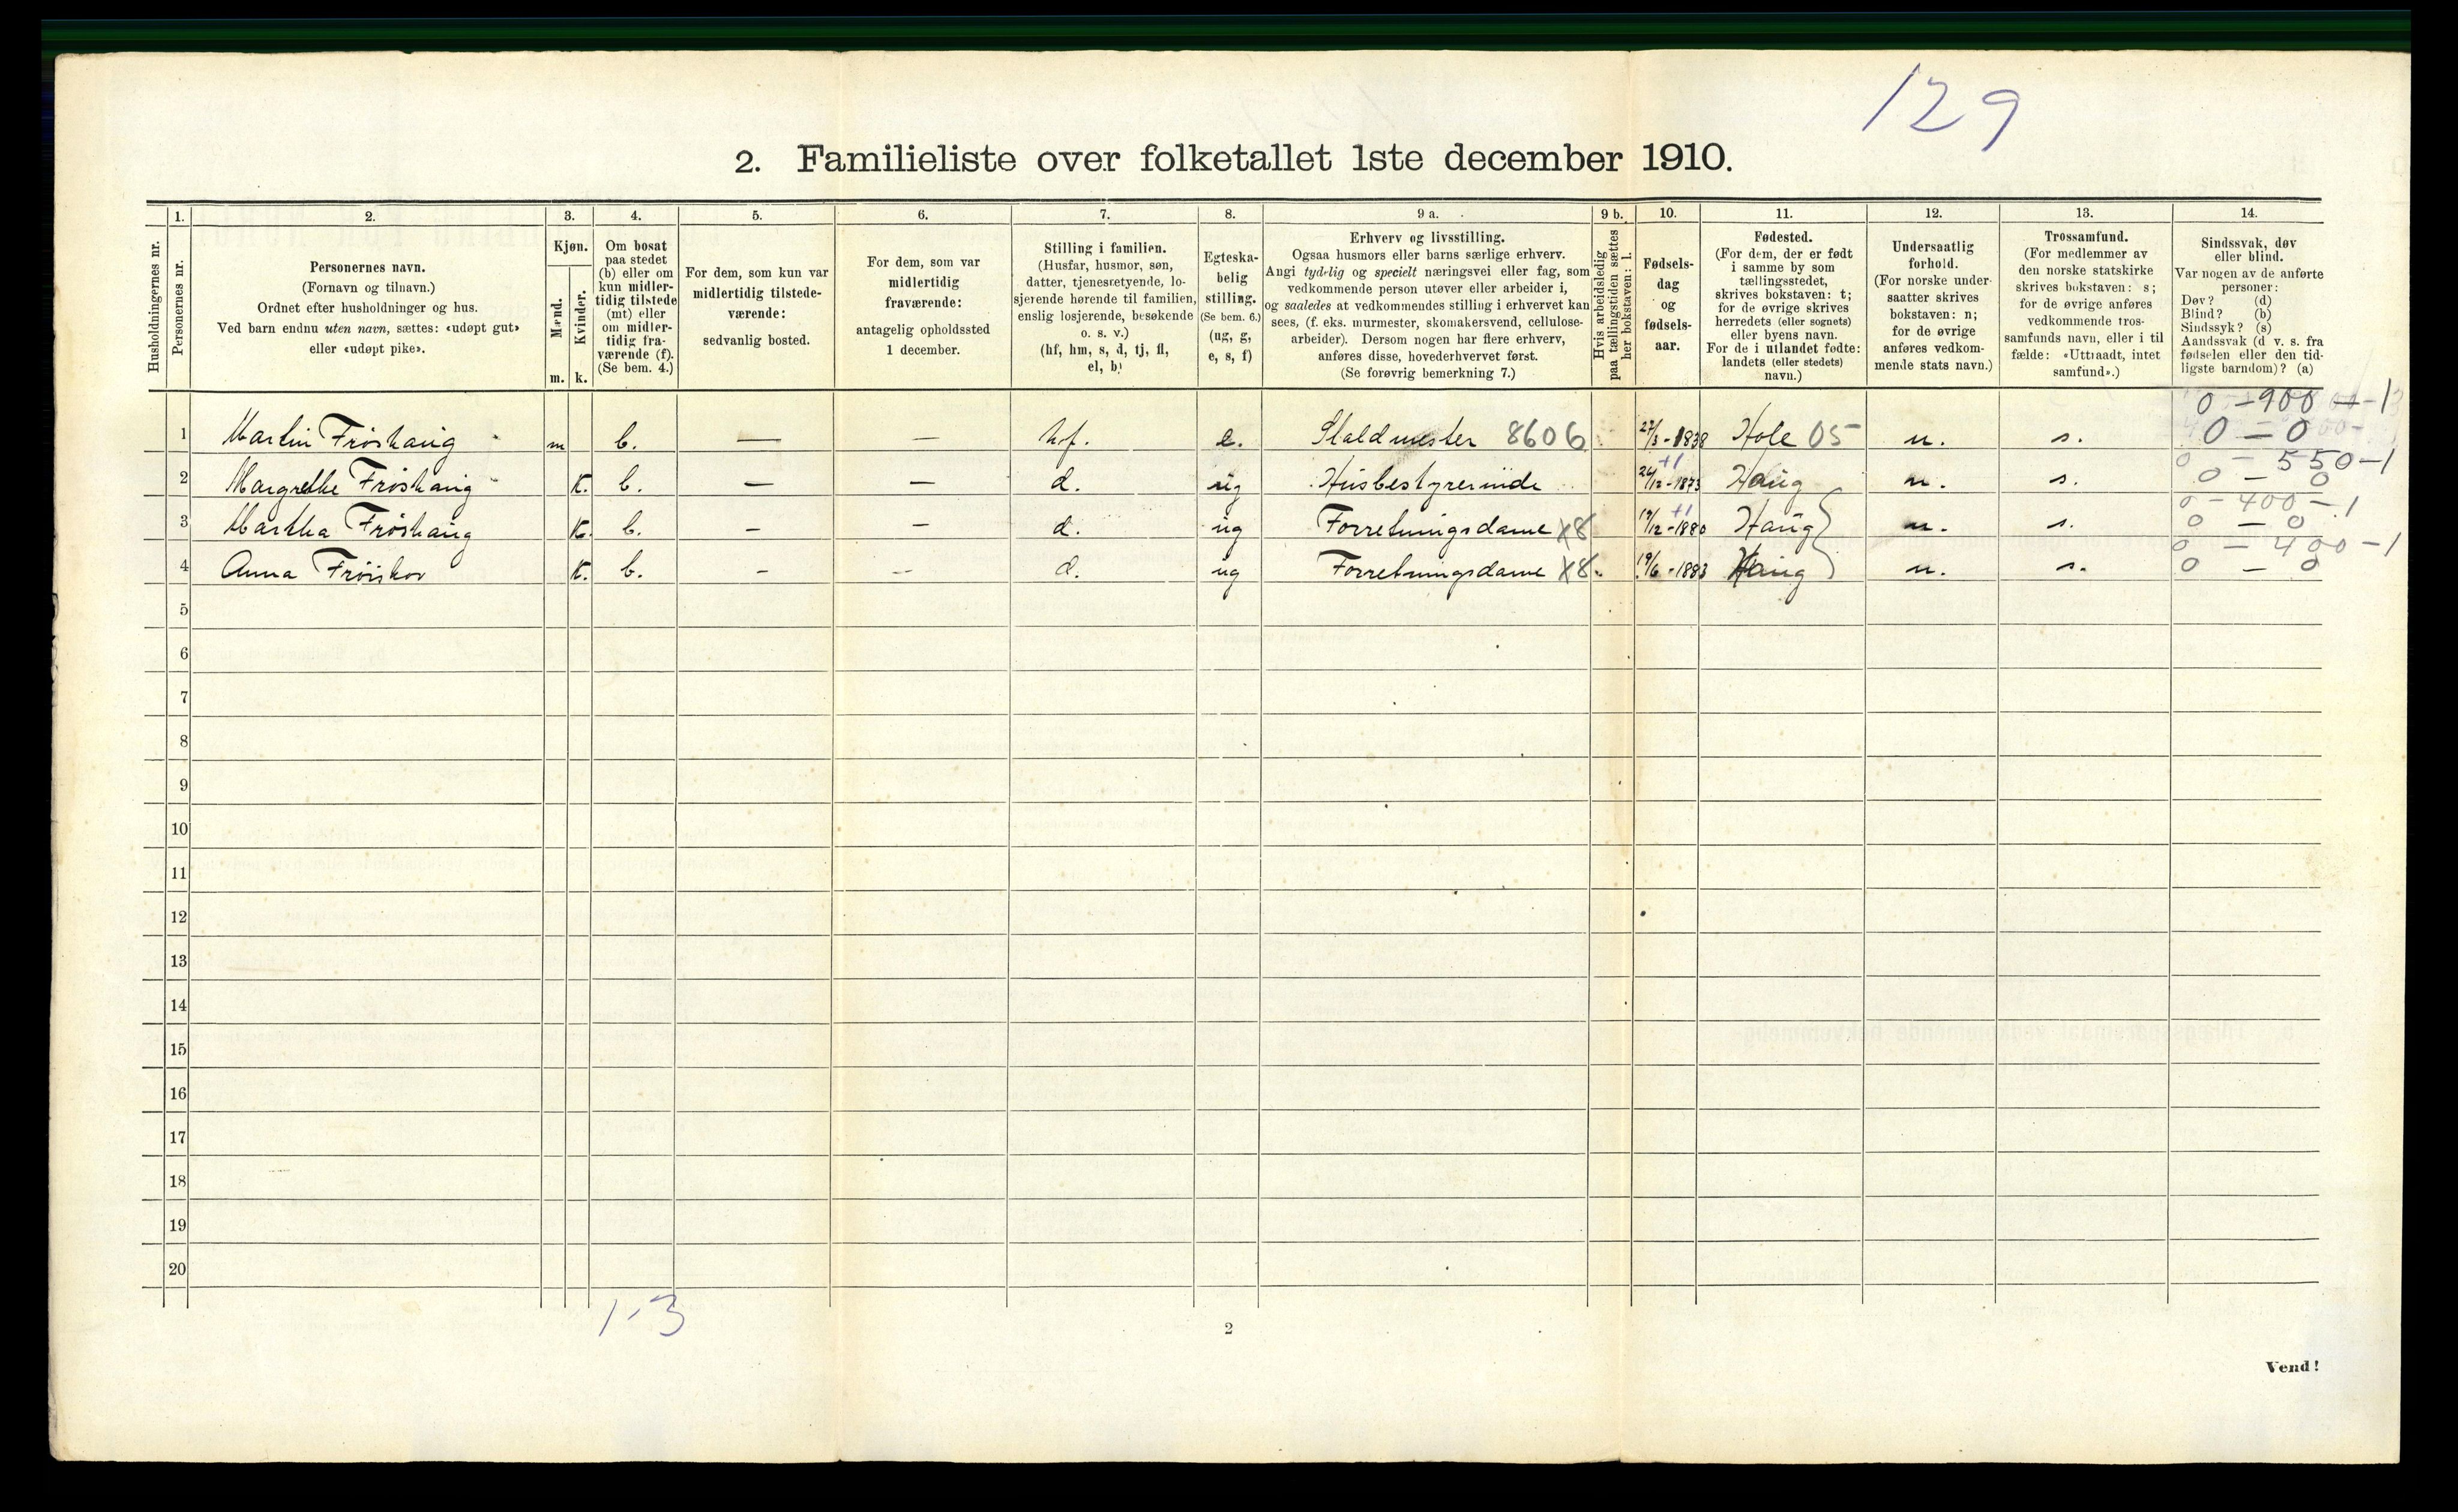 129
2. Familieliste over folketallet 1ste december 1910.
1. 2. 3. 4. 5. 6. 7. 8. 9 a. 9 b. 10. 11. 12. 13. 14.
Husholdningernes nr.
Personernes nr.
Personernes navn.
(Fornavn og tilnavn.)
Ordnet efter husholdninger og hus.
Ved barn endnu uten navn, sættes: «udøpt gut»
eller «udøpt pike».
Kjøn.
Mænd.
Kvinder.
m. k.
Om bosat
paa stedet
(b) eller om
kun midler-
tidig tilstede
(mt) eller
om midler-
tidig fra-
værende (f).
(Se bem. 4.)
For dem, som kun var
midlertidig tilstede-
værende:
sedvanlig bosted.
For dem, som var
midlertidig
fraværende:
antagelig opholdssted
1 december.
Stilling i familien.
(Husfar, husmor, søn,
datter, tjenestetyende, lo-
sjerende hørende til familien,
enslig losjerende, besøkende
o. s. v.)
(hf, hm, s, d, tj, fl,
el, b)
Egteska-
belig
stilling.
(Se bem. 6.)
(ug, g,
e, s, f)
Erhverv og livsstilling.
Ogsaa husmors eller barns særlige erhverv.
Angi tydelig og specielt næringsvei eller fag, som
vedkommende person utøver eller arbeider i,
og saaledes at vedkommendes stilling i erhvervet kan
sees, (f. eks. murmester, skomakersvend, cellulose-
arbeider). Dersom nogen har flere erhverv,
anføres disse, hovederhvervet først.
(Se forøvrig bemerkning 7.)
Hvis arbeidsledig
paa tællingstiden sættes
her bokstaven: l.
Fødsels-
dag
og
fødsels-
aar.
Fødested.
(For dem, der er født
i samme by som
tællingsstedet,
skrives bokstaven: t;
for de øvrige skrives
herredets (eller sognets)
eller byens navn.
For de i utlandet fødte:
landets (eller stedets)
navn.)
Undersaatlig
forhold.
(For norske under-
saatter skrives
bokstaven: n;
for de øvrige
anføres vedkom-
mende stats navn.)
Trossamfund.
(For medlemmer av
den norske statskirke
skrives bokstaven: s;
for de øvrige anføres
vedkommende tros-
samfunds navn, eller i til
fælde: «Uttraadt, intet
samfund».)
Sindssvak, døv
eller blind.
Var nogen av de anførte
personer:
Døv? (d)
Blind? (b)
Sindssyk? (s)
Aandssvak (d v. s. fra
fødselen eller den tid-
ligste barndom)? (a)
0 - 900 - 1
1 Martin Frøshaug m b. — — hf. e. Staldmester 8606 27/3 - 1838 Hole 05 n. s. 0 — 0
+1 0 - 550 - 1
2 Margrethe Frøshaug K. b. — — d. ug Husbestyrerinde 26/12 - 1873 Haug n. s. 0 — 0
+1 0 - 400 - 1
3 Martha Frøshaug K. b. - - d. ug Forretningsdame X8 19/12 - 1880 Haug n. s. 0 — 0
0 - 400 - 1
4 Anna Frøishov K. b. - - d. ug Forretningsdame X8. 19/6 - 1883 Haug n. s. 0 — 0
5
6
7
8
9
10
11
12
13
14
15
16
17
18
19
20
1-3
2
Vend!